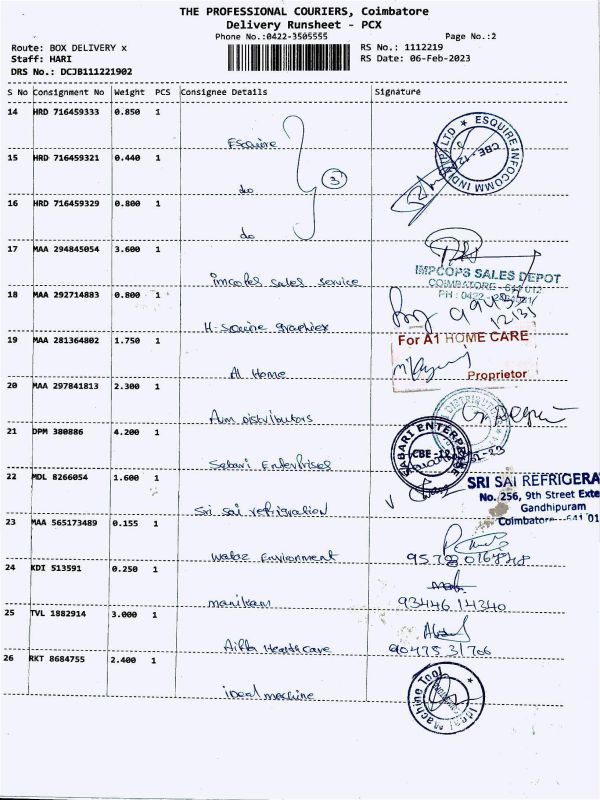 THE PROFESSIONAL COURIERS, Coimbatore
Delivery Runsheet - PCX
Phone No.:0422-3505555 Page No.:2
Route: BOX DELIVERY x RS No.: 1112219
Staff: HARI RS Date: 06-Feb-2023
DRS No.: DCJB111221902
S No Consignment No Weight PCS Consignee Details Signature
14 HRD 716459333 0.850 1
Esquire
ESQUIRE INFOCOMM INDIA PVT LTD ★ CBE-12 ★
15 HRD 716459321 0.440 1
do 3
16 HRD 716459329 0.800 1
do
17 MAA 294845054 3.600 1
imcops sales service
IMPCOPS SALES DEPOT
COIMBATORE - 641 012
PH : 0422 -
18 MAA 292714883 0.800 1
H-Squine graphics
12131
19 MAA 281364802 1.750 1
For A1 HOME CARE
A1 Home
Proprietor
20 MAA 297841813 2.300 1
Avm Distributors
DISTRIBUT
21 DPM 380886 4.200 1
SABARI ENTERPRISE
CBE -12
Sabari Enterprises
22 MDL 8266054 1.600 1
SRI SAI REFRIGERA
No. 256, 9th Street Exte
Gandhipuram
Sri Sai refrigration
Coimbatore - 641 01
23 MAA 565173489 0.155 1
wataz Environment
24 KDI 513591 0.250 1
manikam 9344614340
25 TVL 1882914 3.000 1
Aifla Healthcare 9047531706
26 RKT 8684755 2.400 1
ideal machine
Ideal Machine Tool